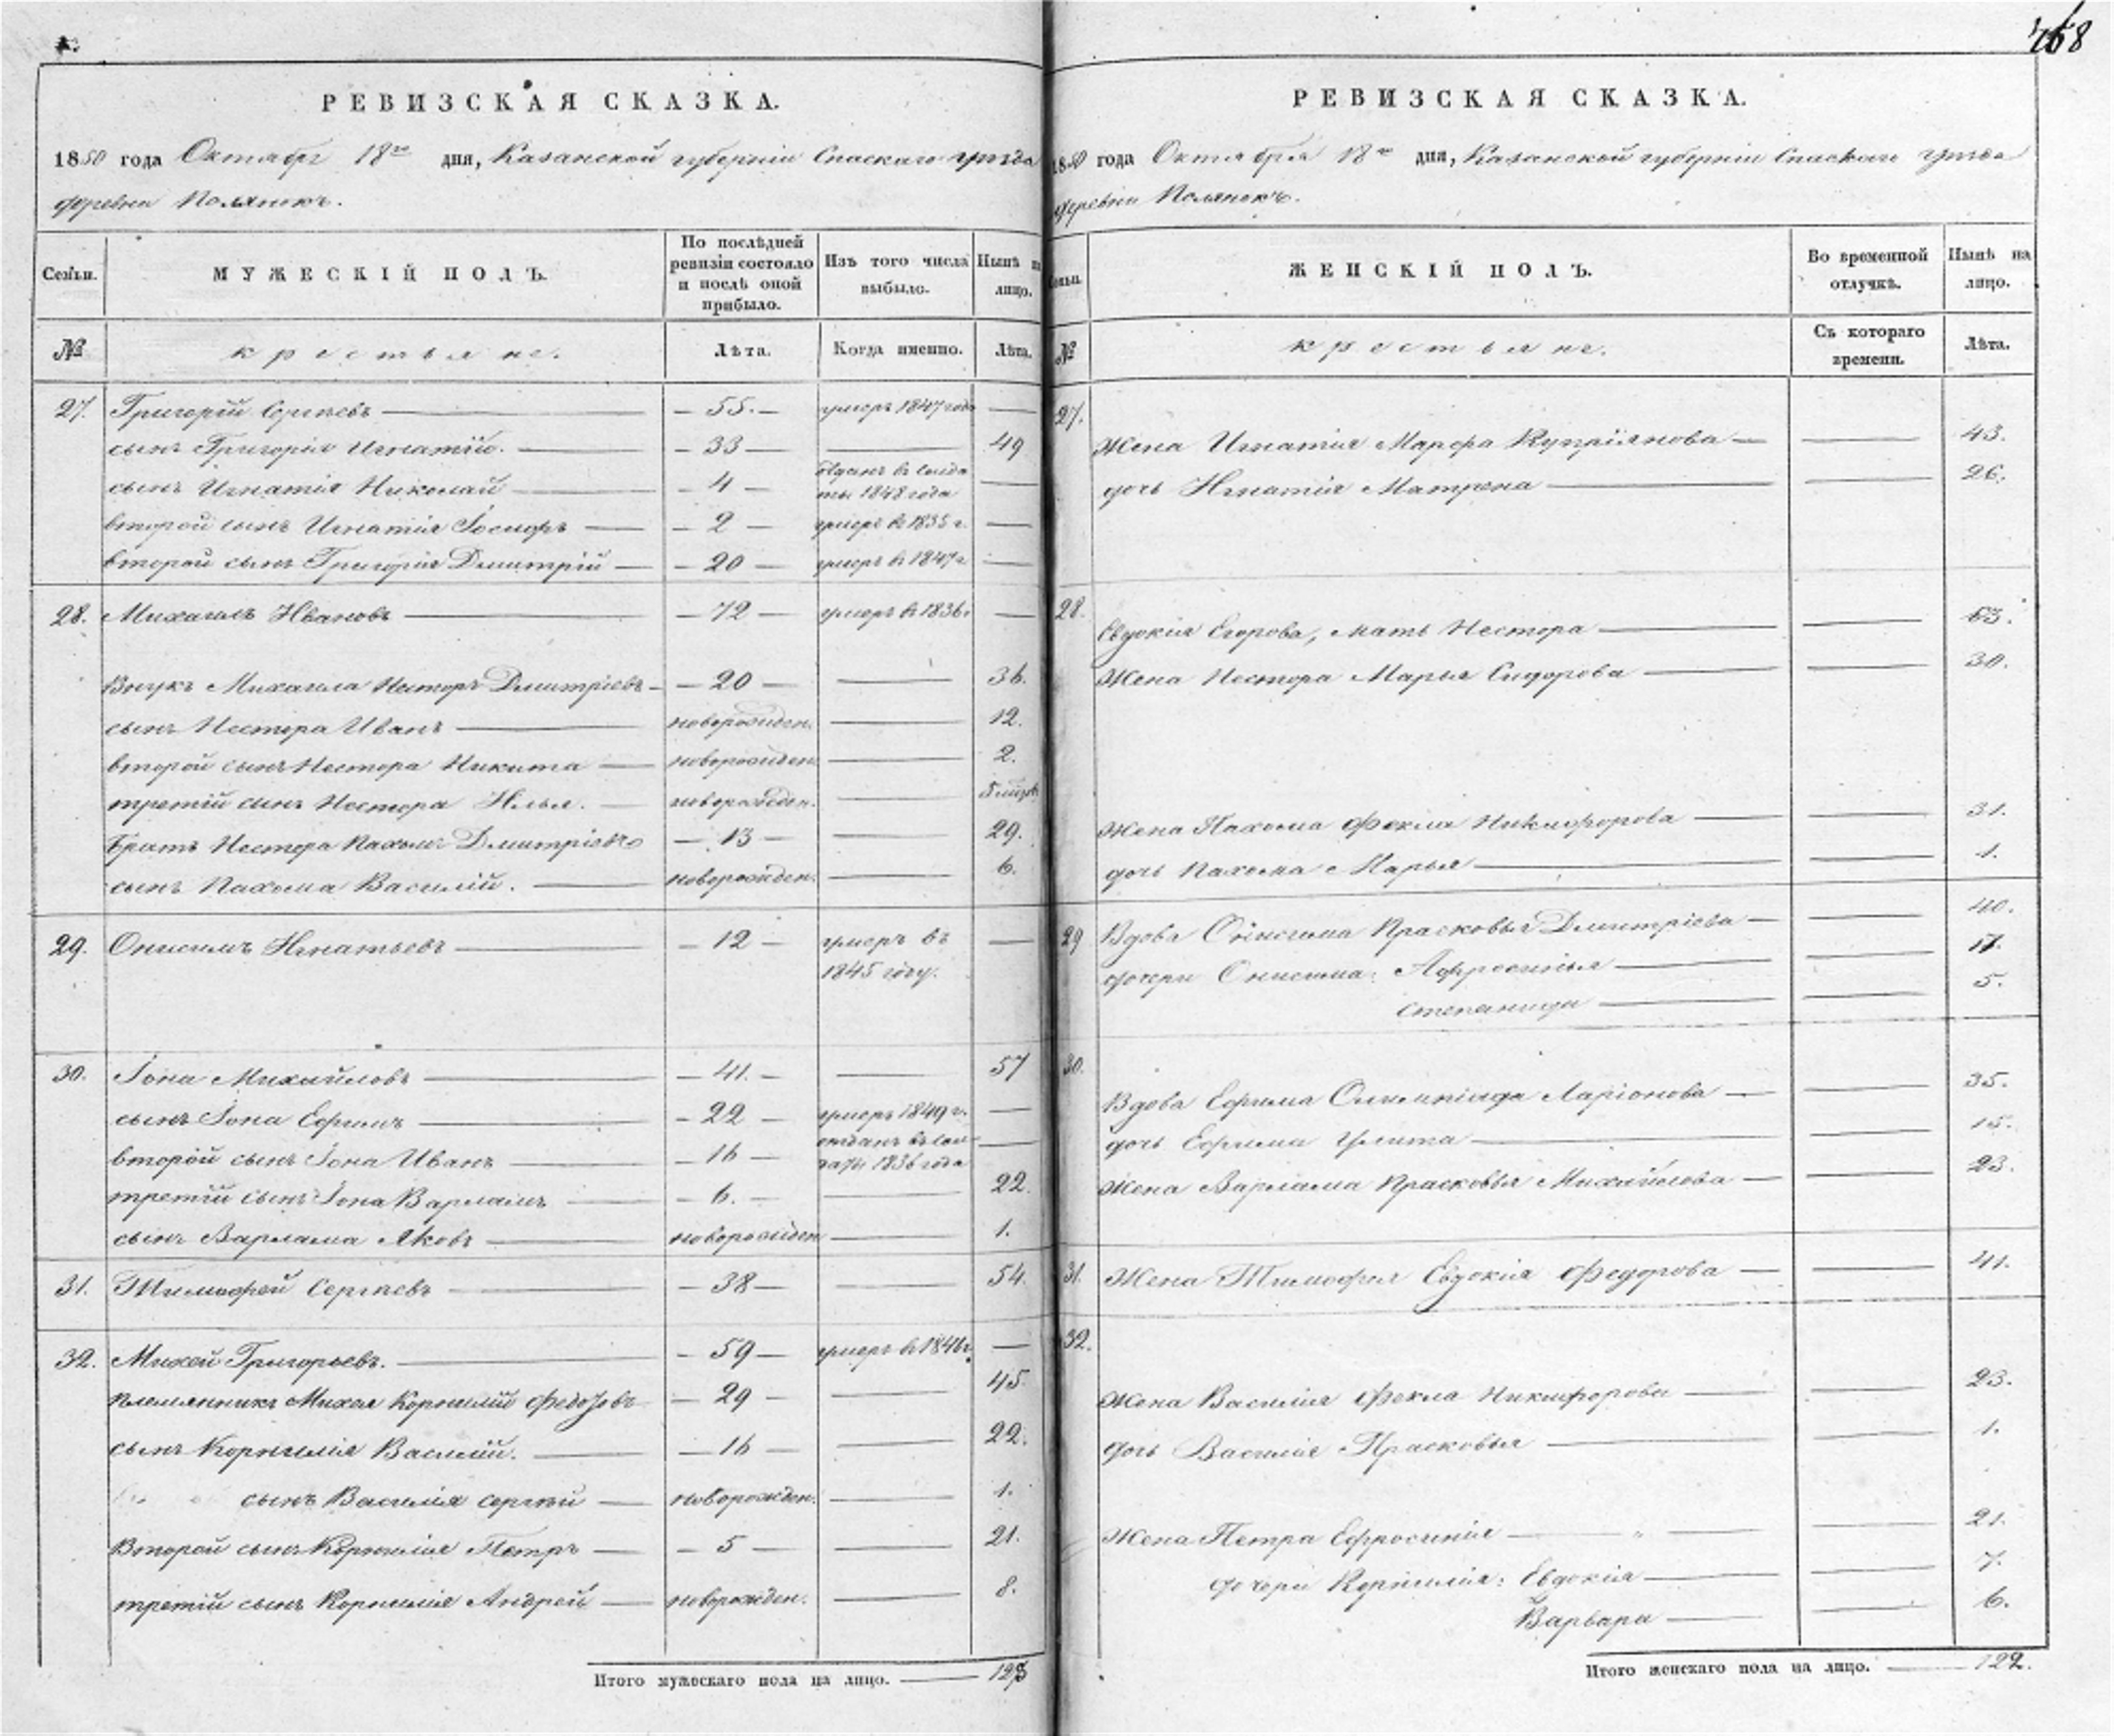 468
РЕВИЗСКАЯ СКАЗКА.
1850 года Октября 18го дня, Казанской губернiи Спаскаго уѣзда
деревни Полянокъ.
Семьи.
МУЖЕСКIЙ ПОЛЪ.
По послѣдней ревизiи состояло и послѣ оной прибыло.
Изъ того числа выбыло.
Нынѣ на лицо.
№
крестьяне.
Лѣта.
Когда именно.
Лѣта.
27. Григорiй Сергѣевъ — 55. — умеръ 1847 года —
сынъ Григорiя Игнатiй. — 33 — — 49
сынъ Игнатiя Николай — 4 — отданъ въ солда
ты 1848 года —
второй сынъ Игнатiя Iосифъ — 2 — умеръ въ 1835 г. —
второй сынъ Григорiя Дмитрiй — 20 — умеръ въ 1847 г. —
28. Михаилъ Ивановъ — 72 — умеръ въ 1836 г. —
Внукъ Михаила Несторъ Дмитрiевъ — 20 — — 36.
сынъ Нестора Иванъ — новорожден. — 12.
второй сынъ Нестора Никита — новорожден. — 2.
третiй сынъ Нестора Илья. — новорожден. —
Братъ Нестера Пахомъ Дмитрiевъ — 13 — — 29.
сынъ Пахома Василiй. — новорожден. — 6.
29. Онисимъ Игнатьевъ — 12 — умеръ въ —
1845 году.
30. Iона Михайловъ — 41. — — 57
сынъ Iона Ефимъ — 22 — умеръ 1849 г. —
второй сынъ Iона Иванъ — 16 — отданъ въ сол
даты 1836 года —
третiй сынъ Iона Варламъ — 6. — — 22.
сынъ Варлама Яковъ — новорожден — 1.
31. Тимофей Сергѣевъ — 38 — — 54.
32. Михей Григорьевъ. — 59 — умеръ въ 1846 г. —
племянникъ Михея Корнилiй Федотовъ — 29 — — 45.
сынъ Корнилiя Василiй. — 16 — — 22.
сынъ Василiя Сергѣй — новорожден. — 1.
Второй сынъ Корнилiя Петръ — 5 — — 21.
третiй сынъ Корнилiя Андрей — новорожден. — 8.
Итого мужескаго пола на лицо. — 123
РЕВИЗСКАЯ СКАЗКА.
1850 года Октября 18го дня, Казанской губернiи Спаскаго уѣзда
деревни Полянокъ.
Семьи.
ЖЕНСКIЙ ПОЛЪ.
Во временной отлучкѣ.
Нынѣ на лицо.
№
крестьяне.
Съ котораго времени.
Лѣта.
27.
Жена Игнатiя Марфа Купрiянова — — 43.
дочь Игнатiя Матрена — — 26.
28.
Евдокiя Егорова, мать Нестора — — 63.
Жена Нестора Марья Сидорова — — 30.
Жена Пахома Фекла Никифорова — — 31.
дочь Пахома Марья — — 1.
29 Вдова Онисима Прасковья Дмитрiева — — 40.
дочери Онисима: Афросинья — — 17.
Степанида — — 5.
30.
Вдова Ефима Олимпiада Ларiонова — — 35.
дочь Ефима Улита — — 15.
Жена Варлама Прасковья Михайлова — — 23.
31. Жена Тимофея Евдокiя Федорова — — 41.
32.
Жена Василiя Фекла Никифорова — — 23.
дочь Василiя Прасковья — — 1.
Жена Петра Ефросинiя — „ — — 21.
дочери Корнилiя: Евдокiя — — 7.
Варвара — — 6.
Итого женскаго пола на лицо. — 122.